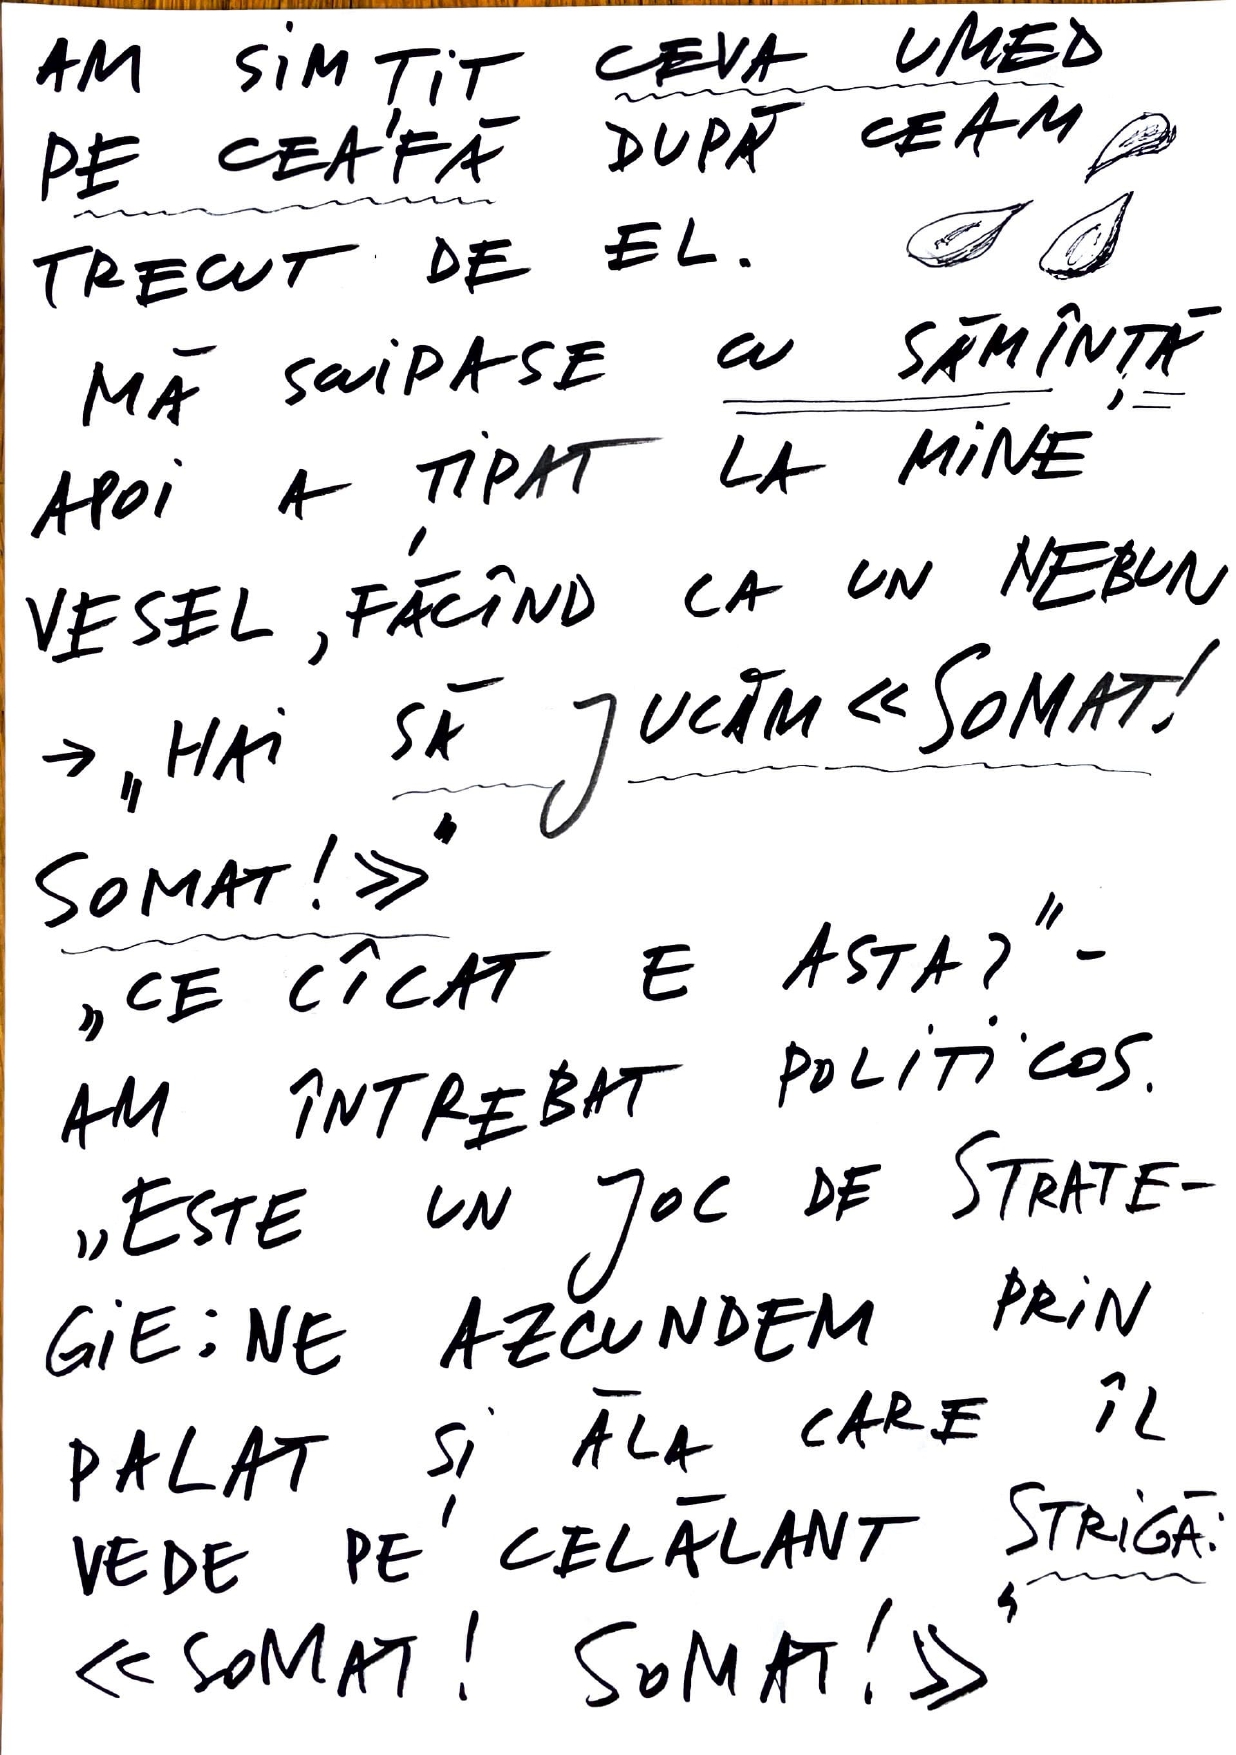 AM SIMȚIT CEVA UMED
PE CEAFĂ DUPĂ CEAM
TRECUT DE EL.
MĂ SCUIPASE CU SĂMÎNȚĂ
APOI A ȚIPAT LA MINE
VESEL, FĂCÎND CA UN NEBUN
→ „HAI SĂ JUCĂM «SOMAT!
SOMAT!»”
„CE CÎCAT E ASTA?” -
AM ÎNTREBAT POLITICOS.
„ESTE UN JOC DE STRATE-
GIE: NE AZCUNDEM PRIN
PALAT ȘI ĂLA CARE ÎL
VEDE PE CELĂLANT STRIGĂ:
«SOMAT! SOMAT!»”